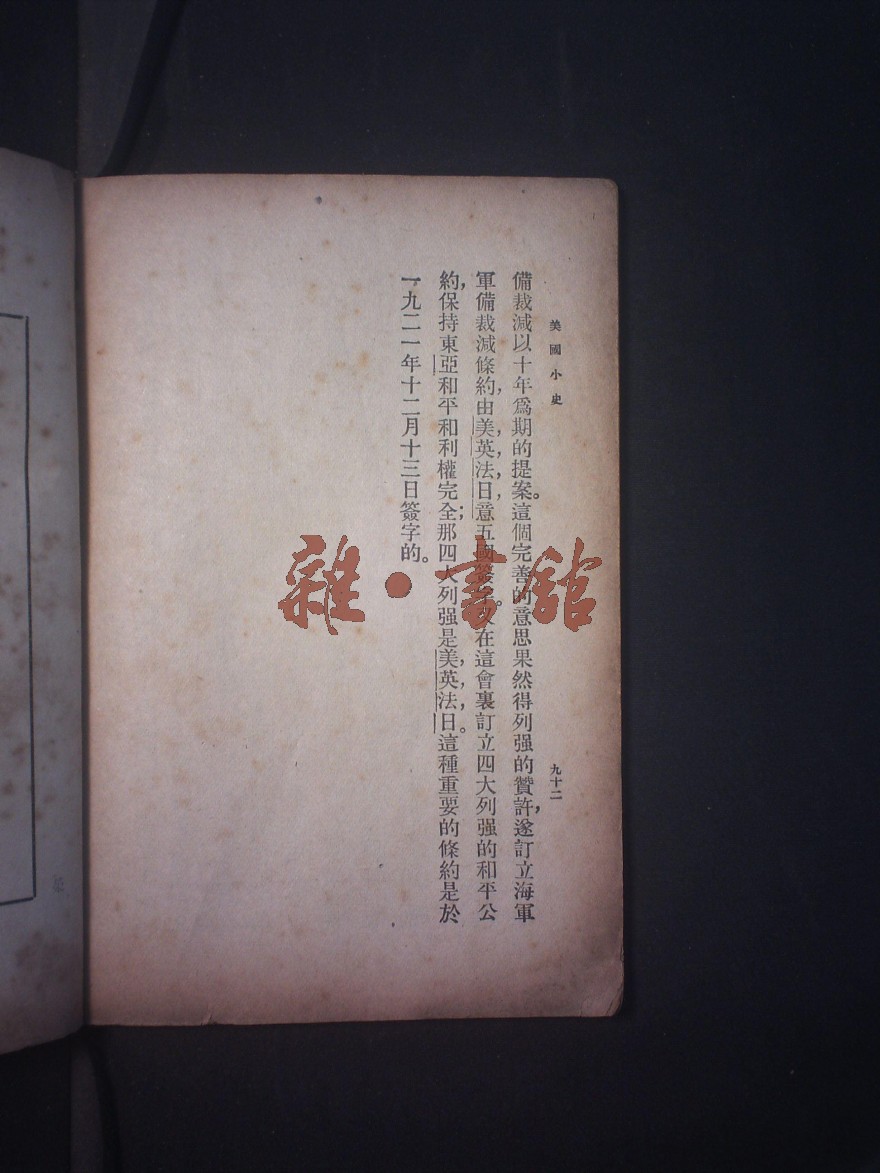 美國小史
九十二
備裁減以十年爲期的提案。這個完善的意思果然得列强的贊許，遂訂立海軍
軍備裁減條約，由美，英，法，日，意五國簽字。又在這會裏訂立四大列强的和平公
約，保持東亞和平和利權完全；那四大列强是美，英，法，日。這種重要的條約是於
一九二一年十二月十三日簽字的。
雜·書館